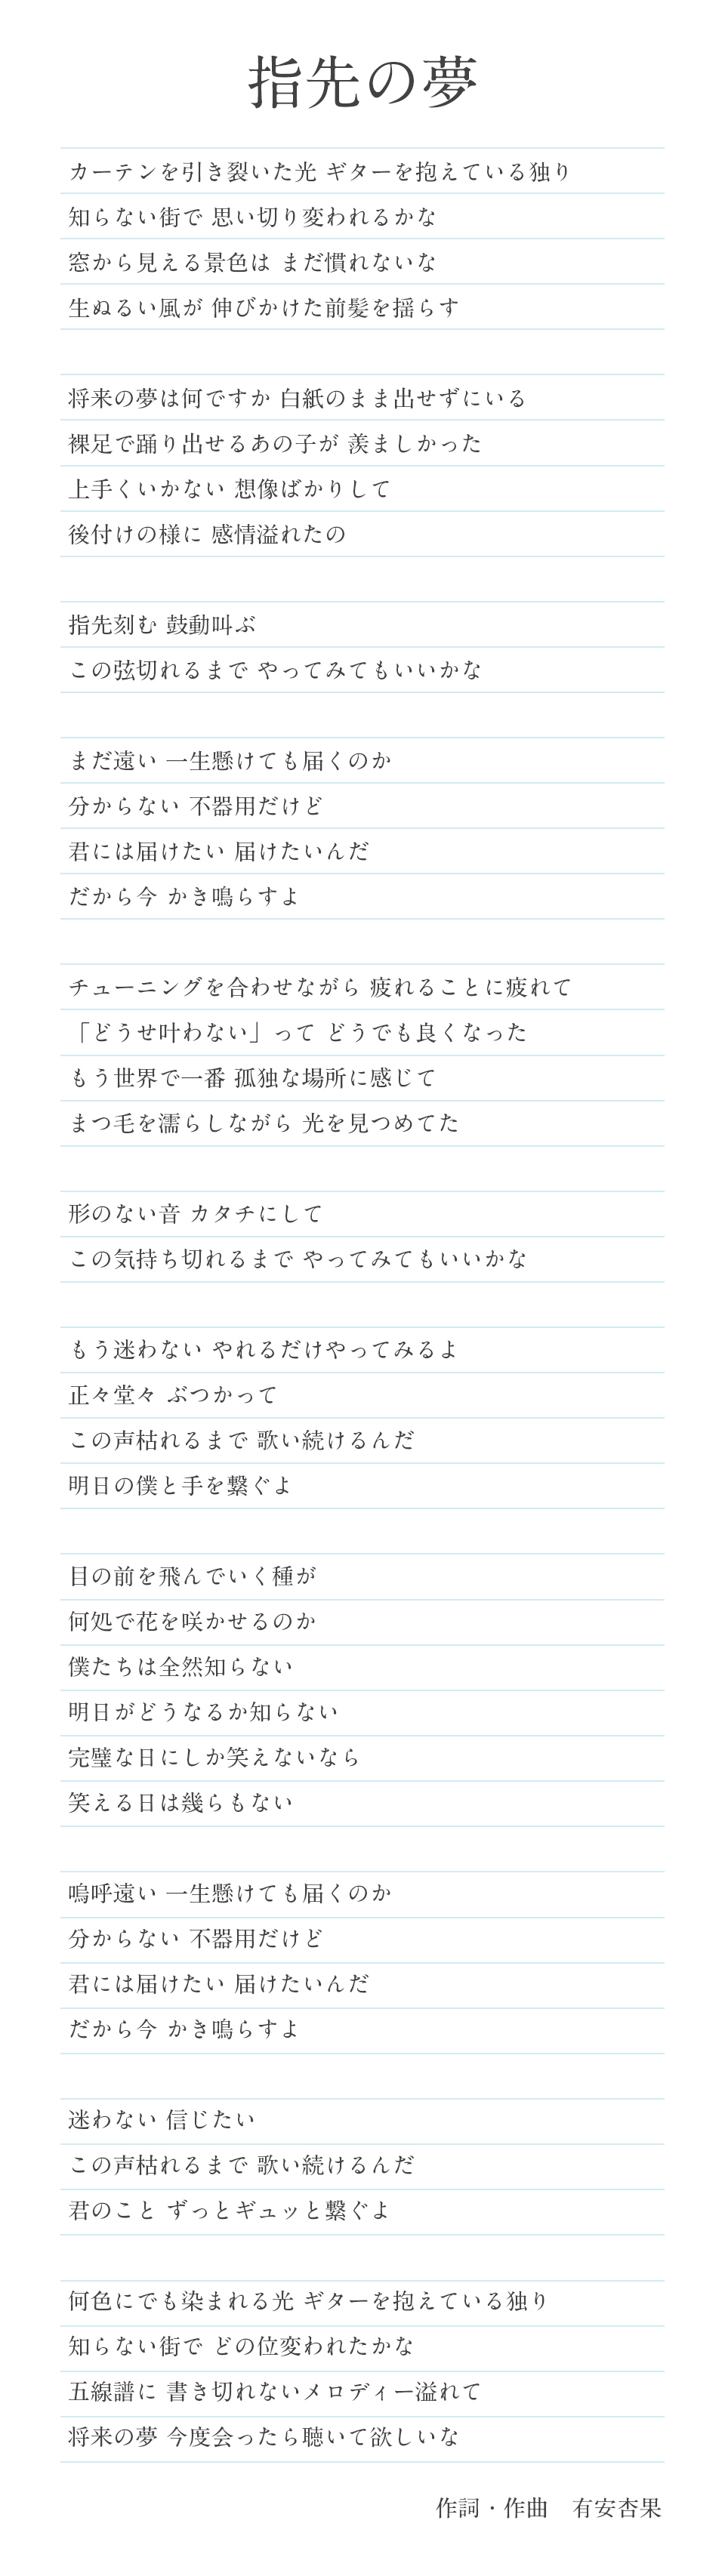 指先の夢
カーテンを引き裂いた光 ギターを抱えている独り
知らない街で 思い切り変われるかな
窓から見える景色は まだ慣れないな
生ぬるい風が 伸びかけた前髪を揺らす
将来の夢は何ですか 白紙のまま出せずにいる
裸足で踊り出せるあの子が 羨ましかった
上手くいかない 想像ばかりして
後付けの様に 感情溢れたの
指先刻む 鼓動叫ぶ
この弦切れるまで やってみてもいいかな
まだ遠い 一生懸けても届くのか
分からない 不器用だけど
君には届けたい 届けたいんだ
だから今 かき鳴らすよ
チューニングを合わせながら 疲れることに疲れて
「どうせ叶わない」って どうでも良くなった
もう世界で一番 孤独な場所に感じて
まつ毛を濡らしながら 光を見つめてた
形のない音 カタチにして
この気持ち切れるまで やってみてもいいかな
もう迷わない やれるだけやってみるよ
正々堂々 ぶつかって
この声枯れるまで 歌い続けるんだ
明日の僕と手を繋ぐよ
目の前を飛んでいく種が
何処で花を咲かせるのか
僕たちは全然知らない
明日がどうなるか知らない
完璧な日にしか笑えないなら
笑える日は幾らもない
嗚呼遠い 一生懸けても届くのか
分からない 不器用だけど
君には届けたい 届けたいんだ
だから今 かき鳴らすよ
迷わない 信じたい
この声枯れるまで 歌い続けるんだ
君のこと ずっとギュッと繋ぐよ
何色にでも染まれる光 ギターを抱えている独り
知らない街で どの位変われたかな
五線譜に 書き切れないメロディー溢れて
将来の夢 今度会ったら聴いて欲しいな
作詞・作曲　有安杏果